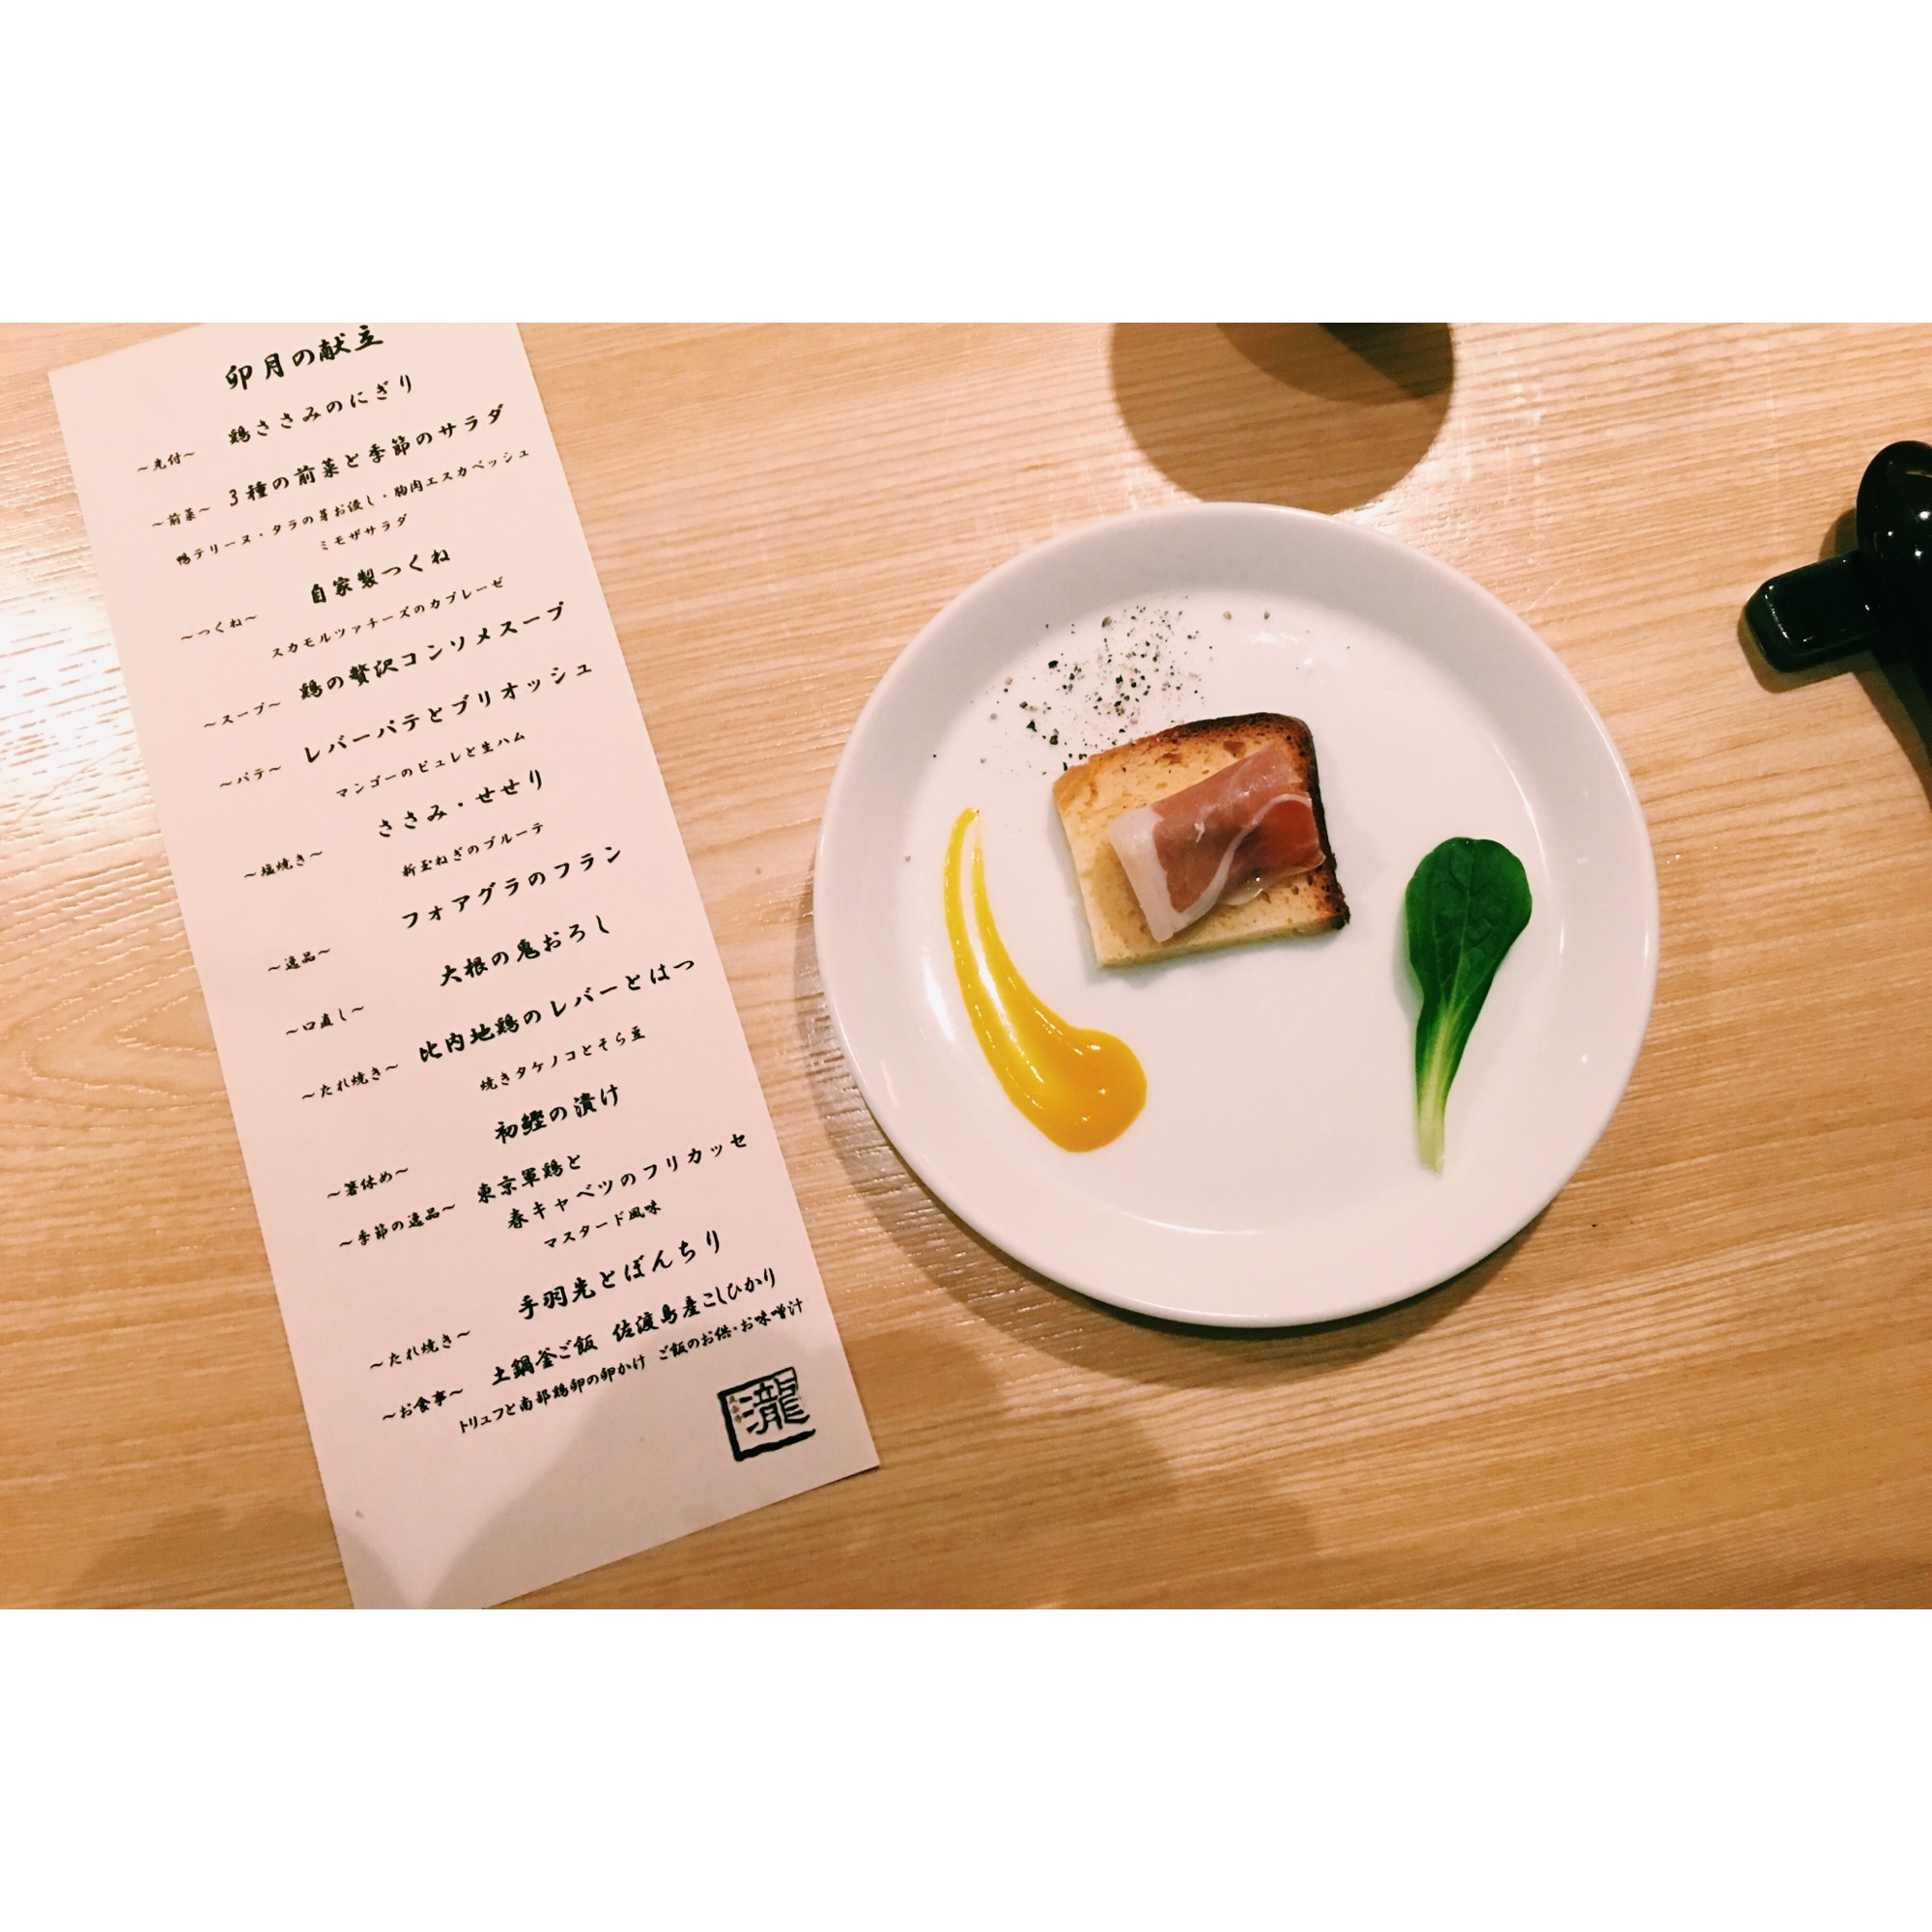 卯月の献立
～先付～ 鶏ささみのにぎり
～前菜～ 3種の前菜と季節のサラダ
鴨テリーヌ・タラの芽お浸し・胸肉エスカベッシュ
ミモザサラダ
～つくね～ 自家製つくね
スカモルツァチーズのカプレーゼ
～スープ～ 鶏の贅沢コンソメスープ
～パテ～ レバーパテとブリオッシュ
マンゴーのピュレと生ハム
～塩焼き～ ささみ・せせり
新玉ねぎのブルーテ
～逸品～ フォアグラのフラン
～口直し～ 大根の鬼おろし
～たれ焼き～ 比内地鶏のレバーとはつ
焼きタケノコとそら豆
～箸休め～ 初鰹の漬け
～季節の逸品～ 東京軍鶏と
春キャベツのフリカッセ
マスタード風味
～たれ焼き～ 手羽先とぼんちり
～お食事～ 土鍋釜ご飯 佐渡島産こしひかり
トリュフと南部鶏卵の卵かけ ご飯のお供・お味噌汁
瀧